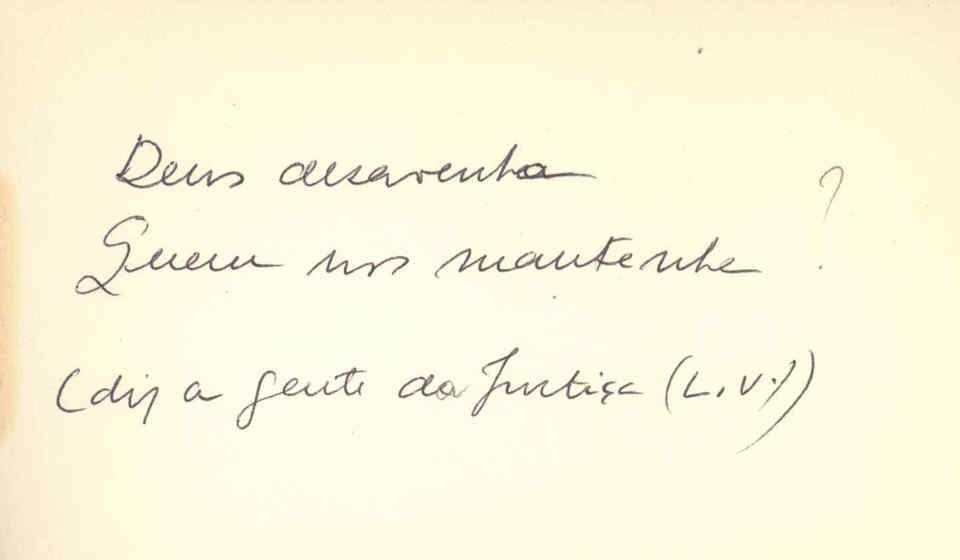 Deus desavenha
Quem nos mantenha ?
(diz a gente da Justiça (L.V.))